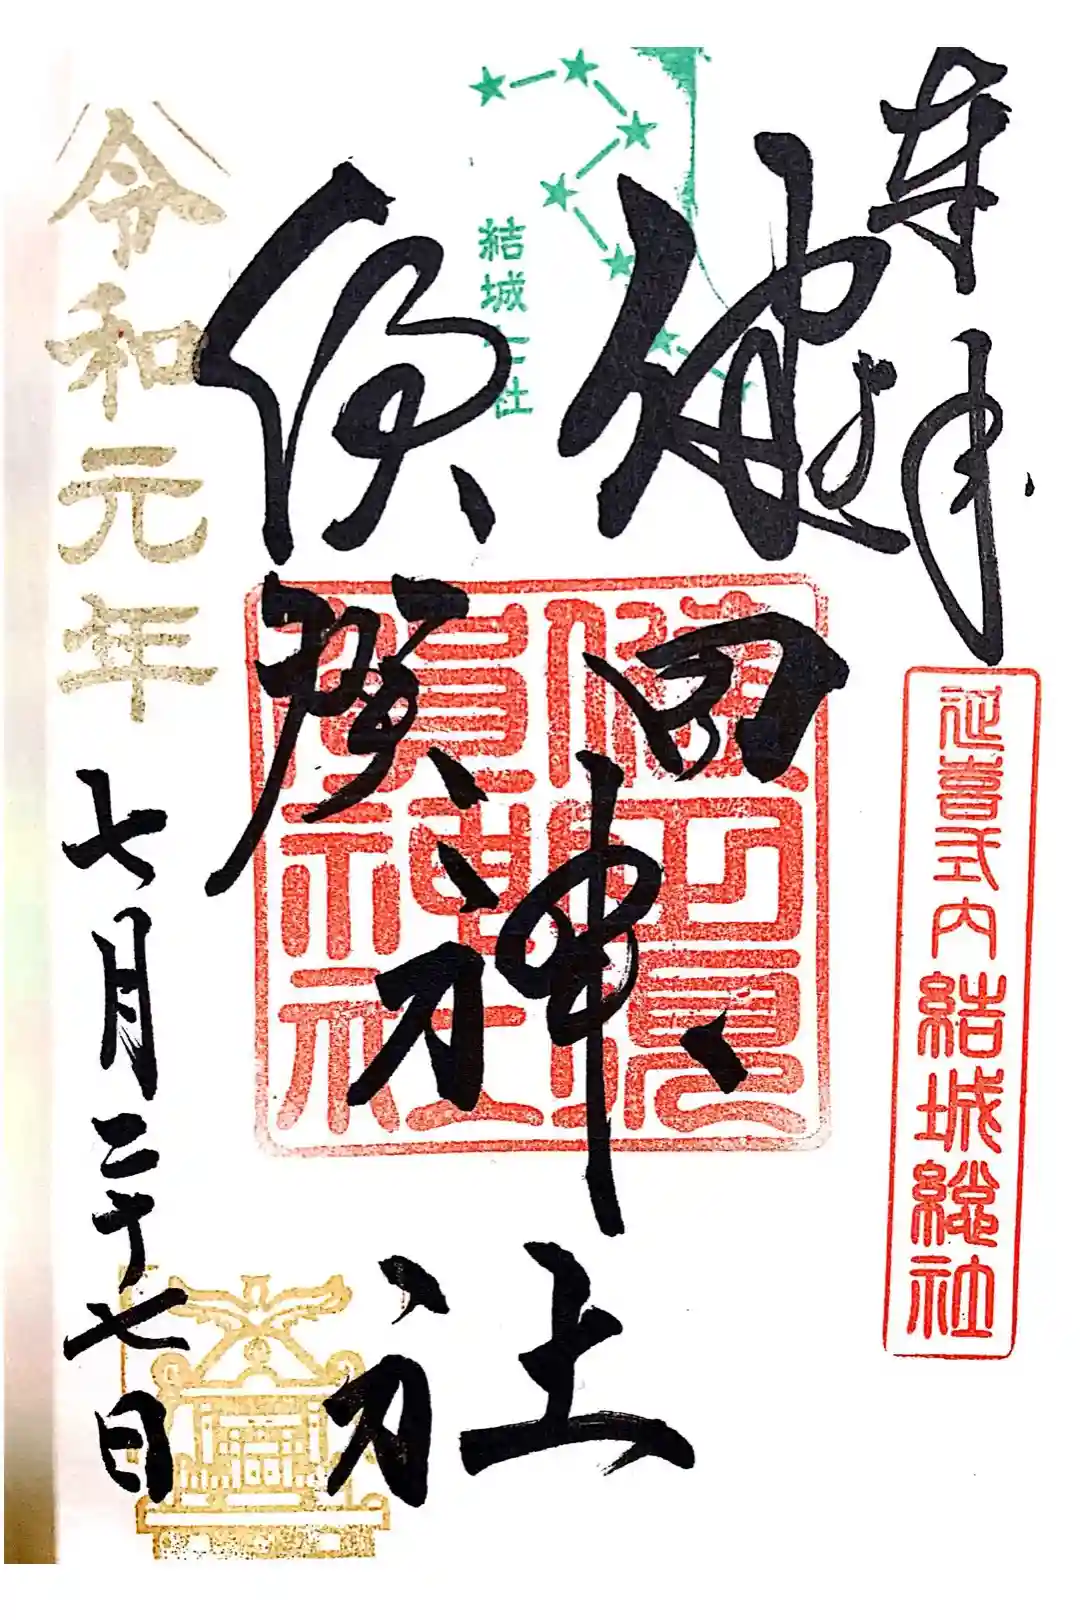 奉拝
延喜式内結城総社
健田
須賀
神社
健田須
賀神社
結城七社
令和元年七月二十七日